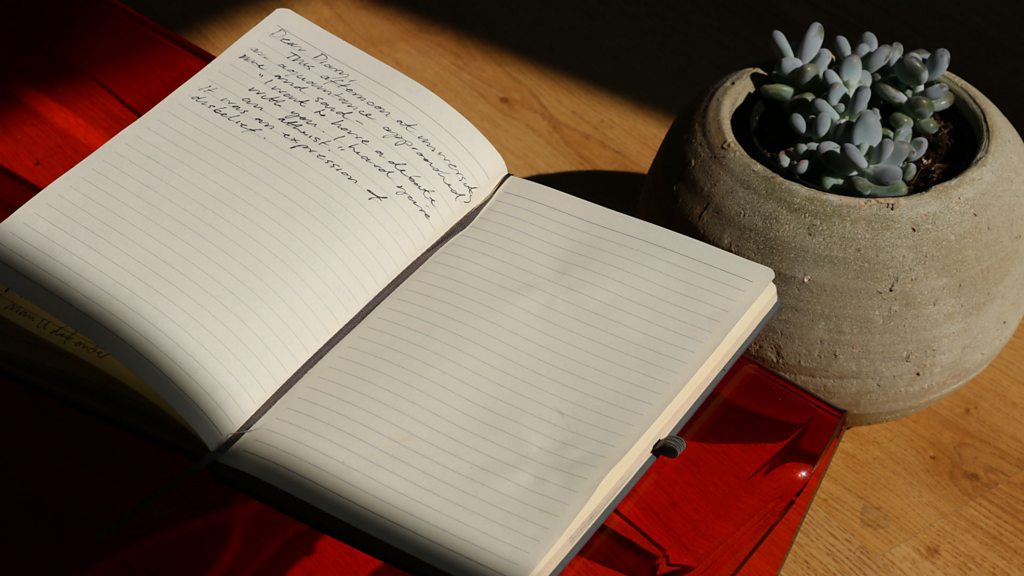 Dear Danny,
This afternoon at university
an acquaintance approached
me and said
"I want to have a debate
with you, I heard you're
an atheist."
It was an expression of
disbelief.